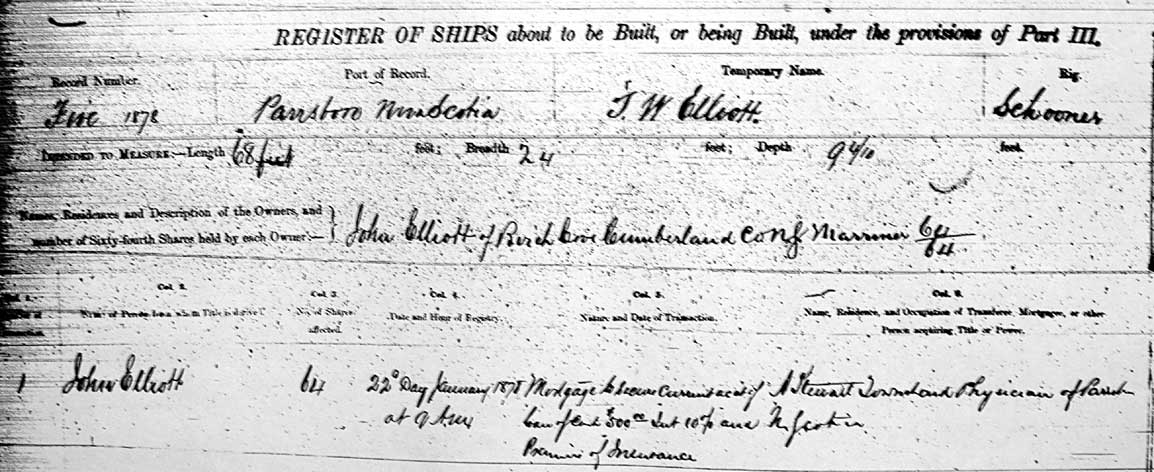 REGISTER OF SHIPS about to be Built, or being Built, under the provisions of Part III.
Record Number. Port of Record. Temporary Name. Rig.
Five 1878 Parrsboro Nova Scotia J. W Elliott. Schooner
INTENDED TO MEASURE:—Length 68 feet feet; Breadth 24 feet; Depth 9 4/10 feet.
Names, Residences, and Description of the Owners, and
number of Sixty-fourth Shares held by each Owner:— } John Elliott of Birch Cove Cumberland Co NS Marriner 64/64
Col. 1. Col. 2. Col. 3. Col. 4. Col. 5. Col. 6.
Name of Person from whom Title is derived. No. of Shares Date and Hour of Registry. Nature and Date of Transaction. Name, Residence, and Occupation of Transferee, Mortgagee, or other
affected. Person acquiring Title or Power.
1 John Elliott 64 22d Day January 1878 Mortgage to secure Current acct of A Stewart Townshend Physician of Parrsboro
at 9 A.M. 500 Int 10% and N Scotia
Premium of Insurance